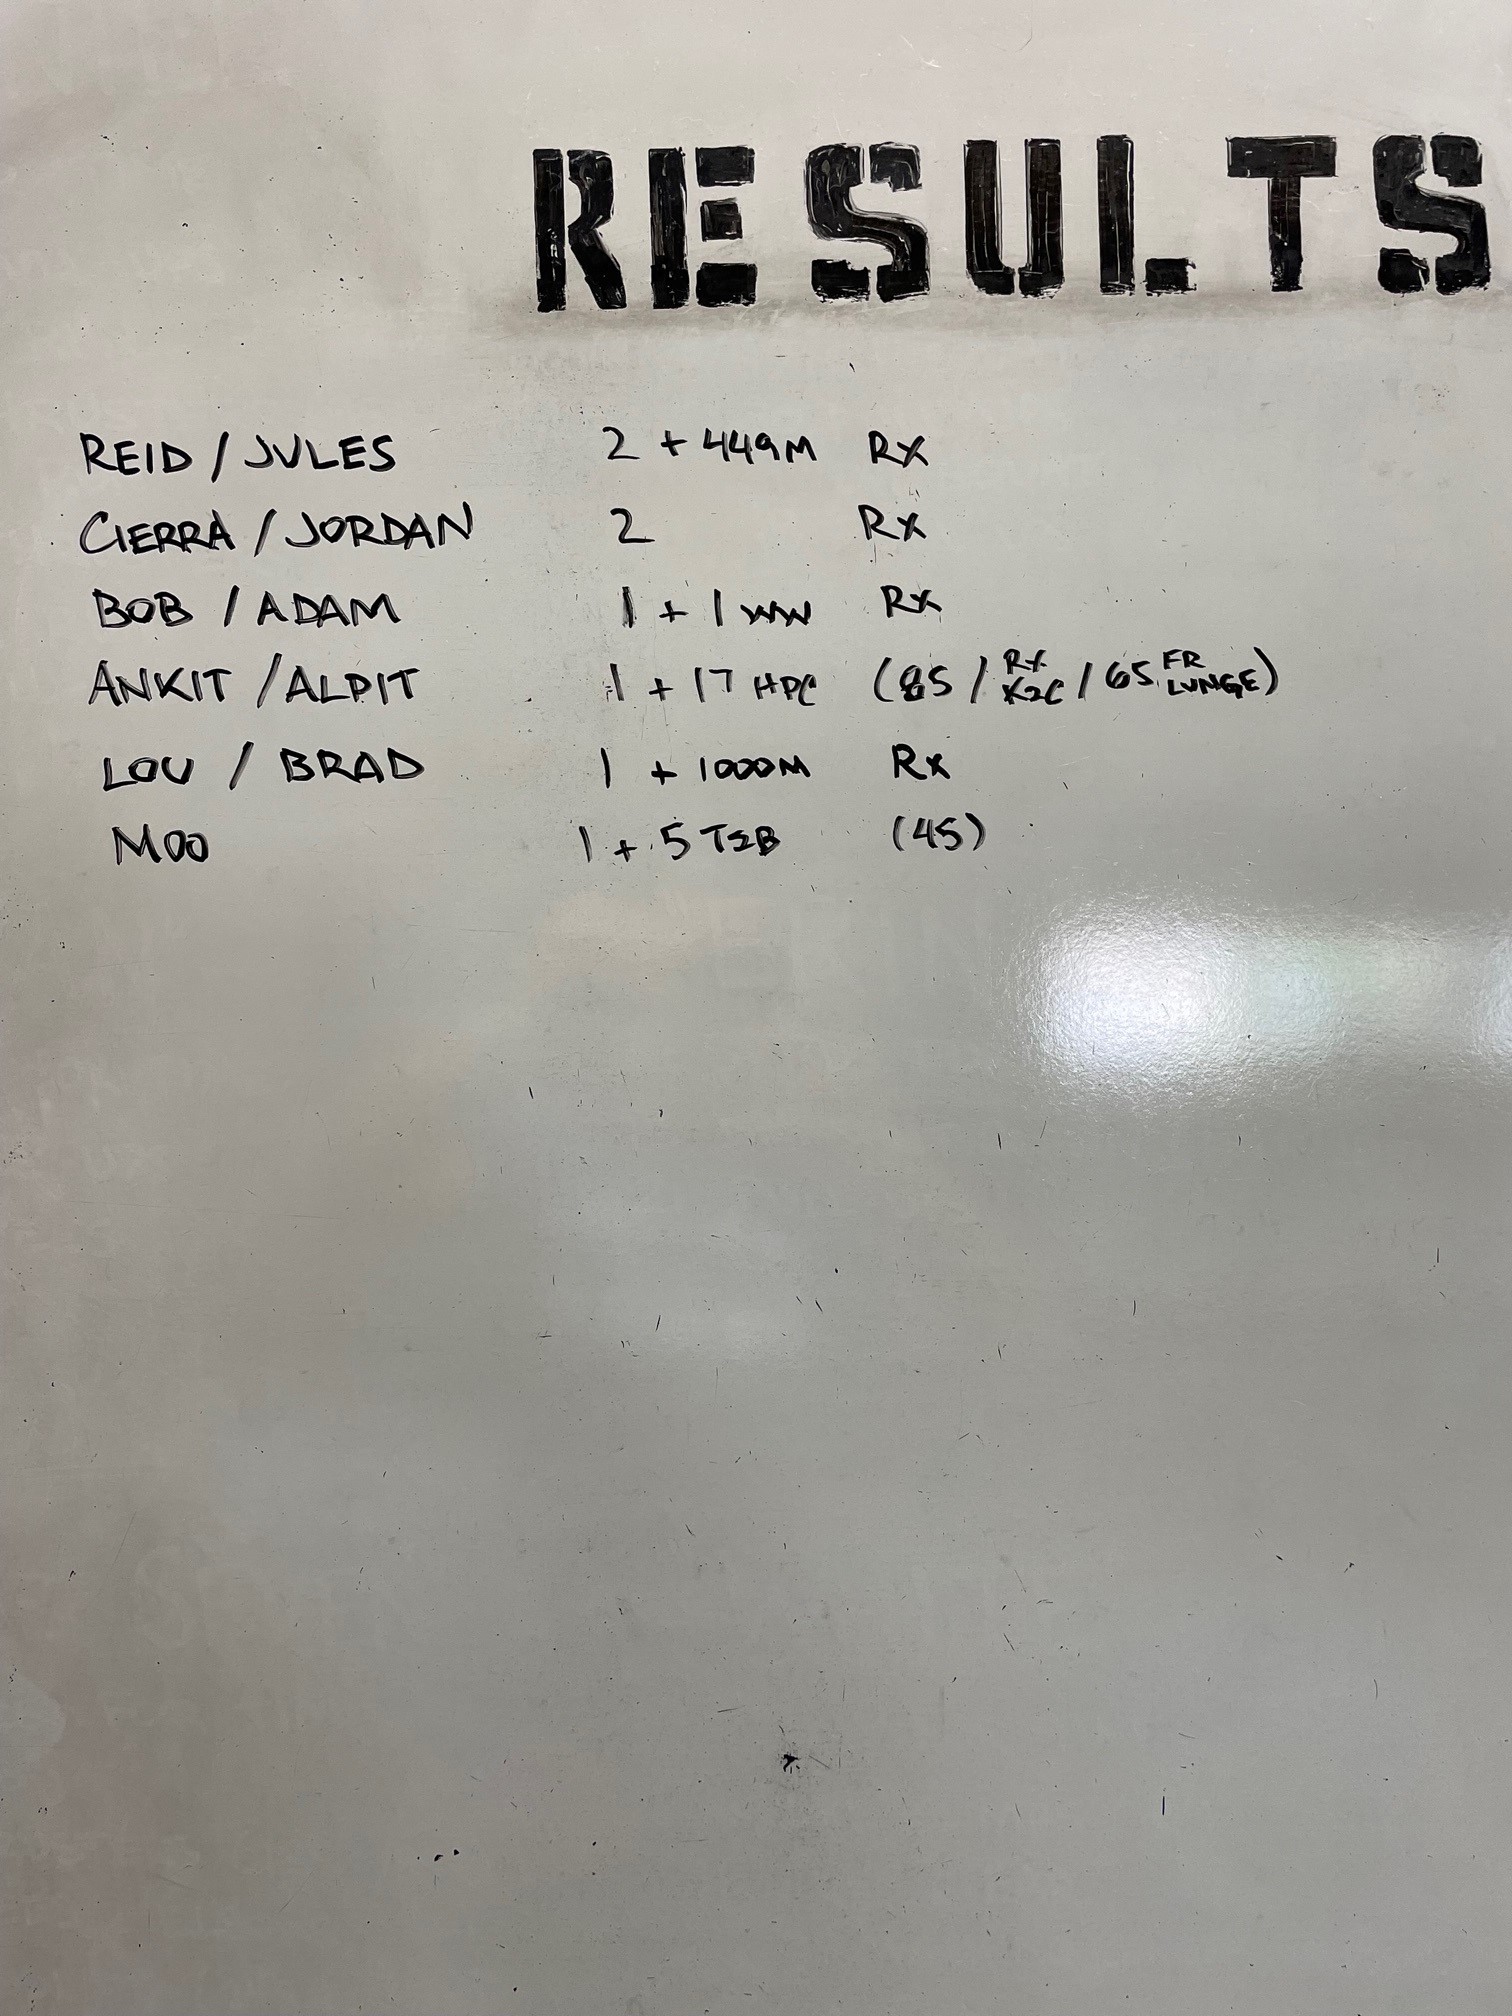 RESULTS
REID / JULES 2 + 449M Rx
CIERRA / JORDAN 2 Rx
BOB / ADAM 1 + 1 WW Rx
ANKIT / ALPIT 1 + 17 HPC (85 / RX K2C / 65 FR LUNGE)
LOU / BRAD 1 + 1000M Rx
MOO 1 + 5 T2B (45)